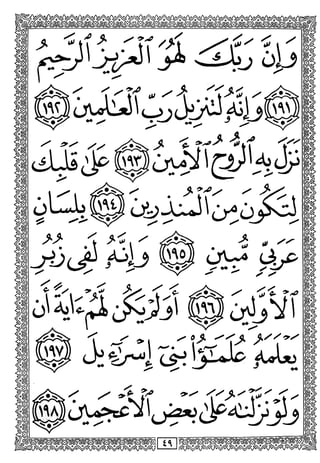 وَإِنَّ رَبَّكَ لَهُوَ ٱلْعَزِيزُ ٱلرَّحِيمُ
١٩١ وَإِنَّهُۥ لَتَنزِيلُ رَبِّ ٱلْعَٰلَمِينَ ١٩٢
نَزَلَ بِهِ ٱلرُّوحُ ٱلْأَمِينُ ١٩٣ عَلَىٰ قَلْبِكَ
لِتَكُونَ مِنَ ٱلْمُنذِرِينَ ١٩٤ بِلِسَانٍ
عَرَبِىٍّ مُّبِينٍ ١٩٥ وَإِنَّهُۥ لَفِى زُبُرِ
ٱلْأَوَّلِينَ ١٩٦ أَوَلَمْ يَكُن لَّهُمْ ءَايَةً أَن
يَعْلَمَهُۥ عُلَمَٰٓؤُا۟ بَنِىٓ إِسْرَٰٓءِيلَ ١٩٧
وَلَوْ نَزَّلْنَٰهُ عَلَىٰ بَعْضِ ٱلْأَعْجَمِينَ ١٩٨
٤٩